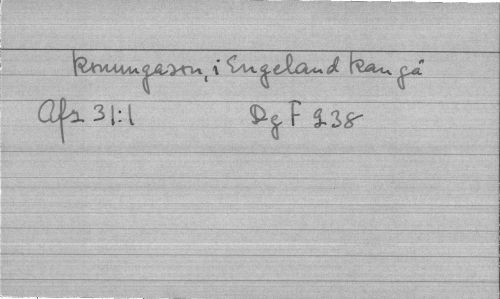 Konungason, i Engeland kan gå
Afz 31:1 DgF 238